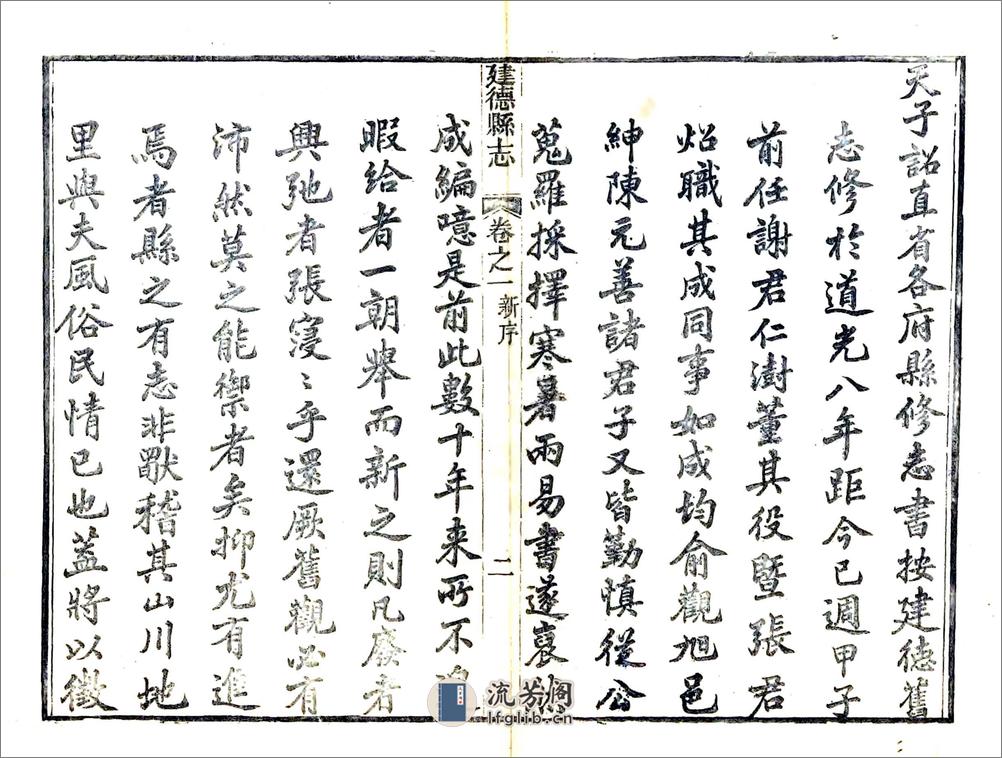 天子詔直省各府縣修志書按建德舊
志修於道光八年距今已週甲子
前任謝君仁澍董其役暨張君
炤職其成同事如成均俞觀旭邑
紳陳元善諸君子又皆勤慎從公
蒐羅採擇寒暑兩易書遂裒然
建德縣志 卷之一 新序 二
成編噫是前此數十年来所不
暇給者一朝舉而新之則凡廢者
興弛者張寖〻乎還厥舊觀必有
沛然莫之能禦者矣抑尤有進
焉者縣之有志非獸稽其山川地
里與夫風俗民情已也蓋將以徵
流芳阁
lfglib.cn